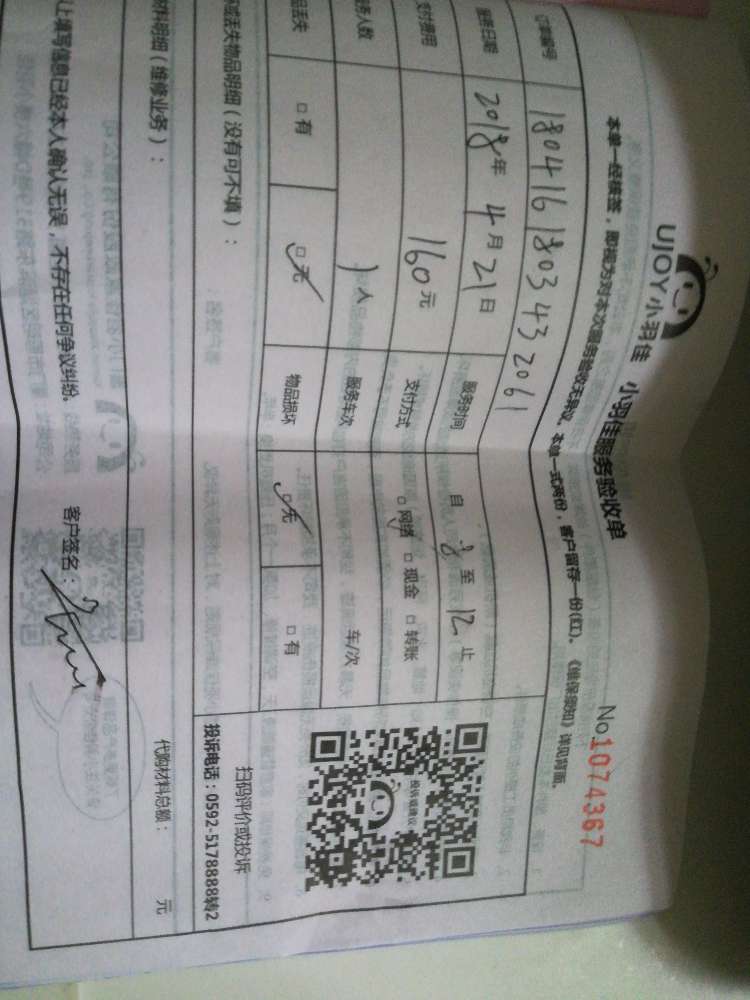 UJOY小羽佳 小羽佳服务验收单 No.1074367
本单一经接签，即视为对本次服务验收无异议。本单一式两份，客户留存一份(红)。《维保须知》详见背面。
订单编号 180416180343 2061
服务日期 2018年4月21日 服务时间 自 8 至 12 止
支付费用 160元 支付方式 □网络 □现金 □转账
务人数 1人 服务车次 车/次
品丢失 □有 □无 物品损坏 □无 □有
丢失物品明细（没有可不填）：
扫码评价或投诉
投诉电话：0592-5178888转2
投诉或建议
材料明细（维修业务）：
代购材料总额： 元
上填写信息已经本人确认无误，不存在任何争议纠纷。 客户签名：